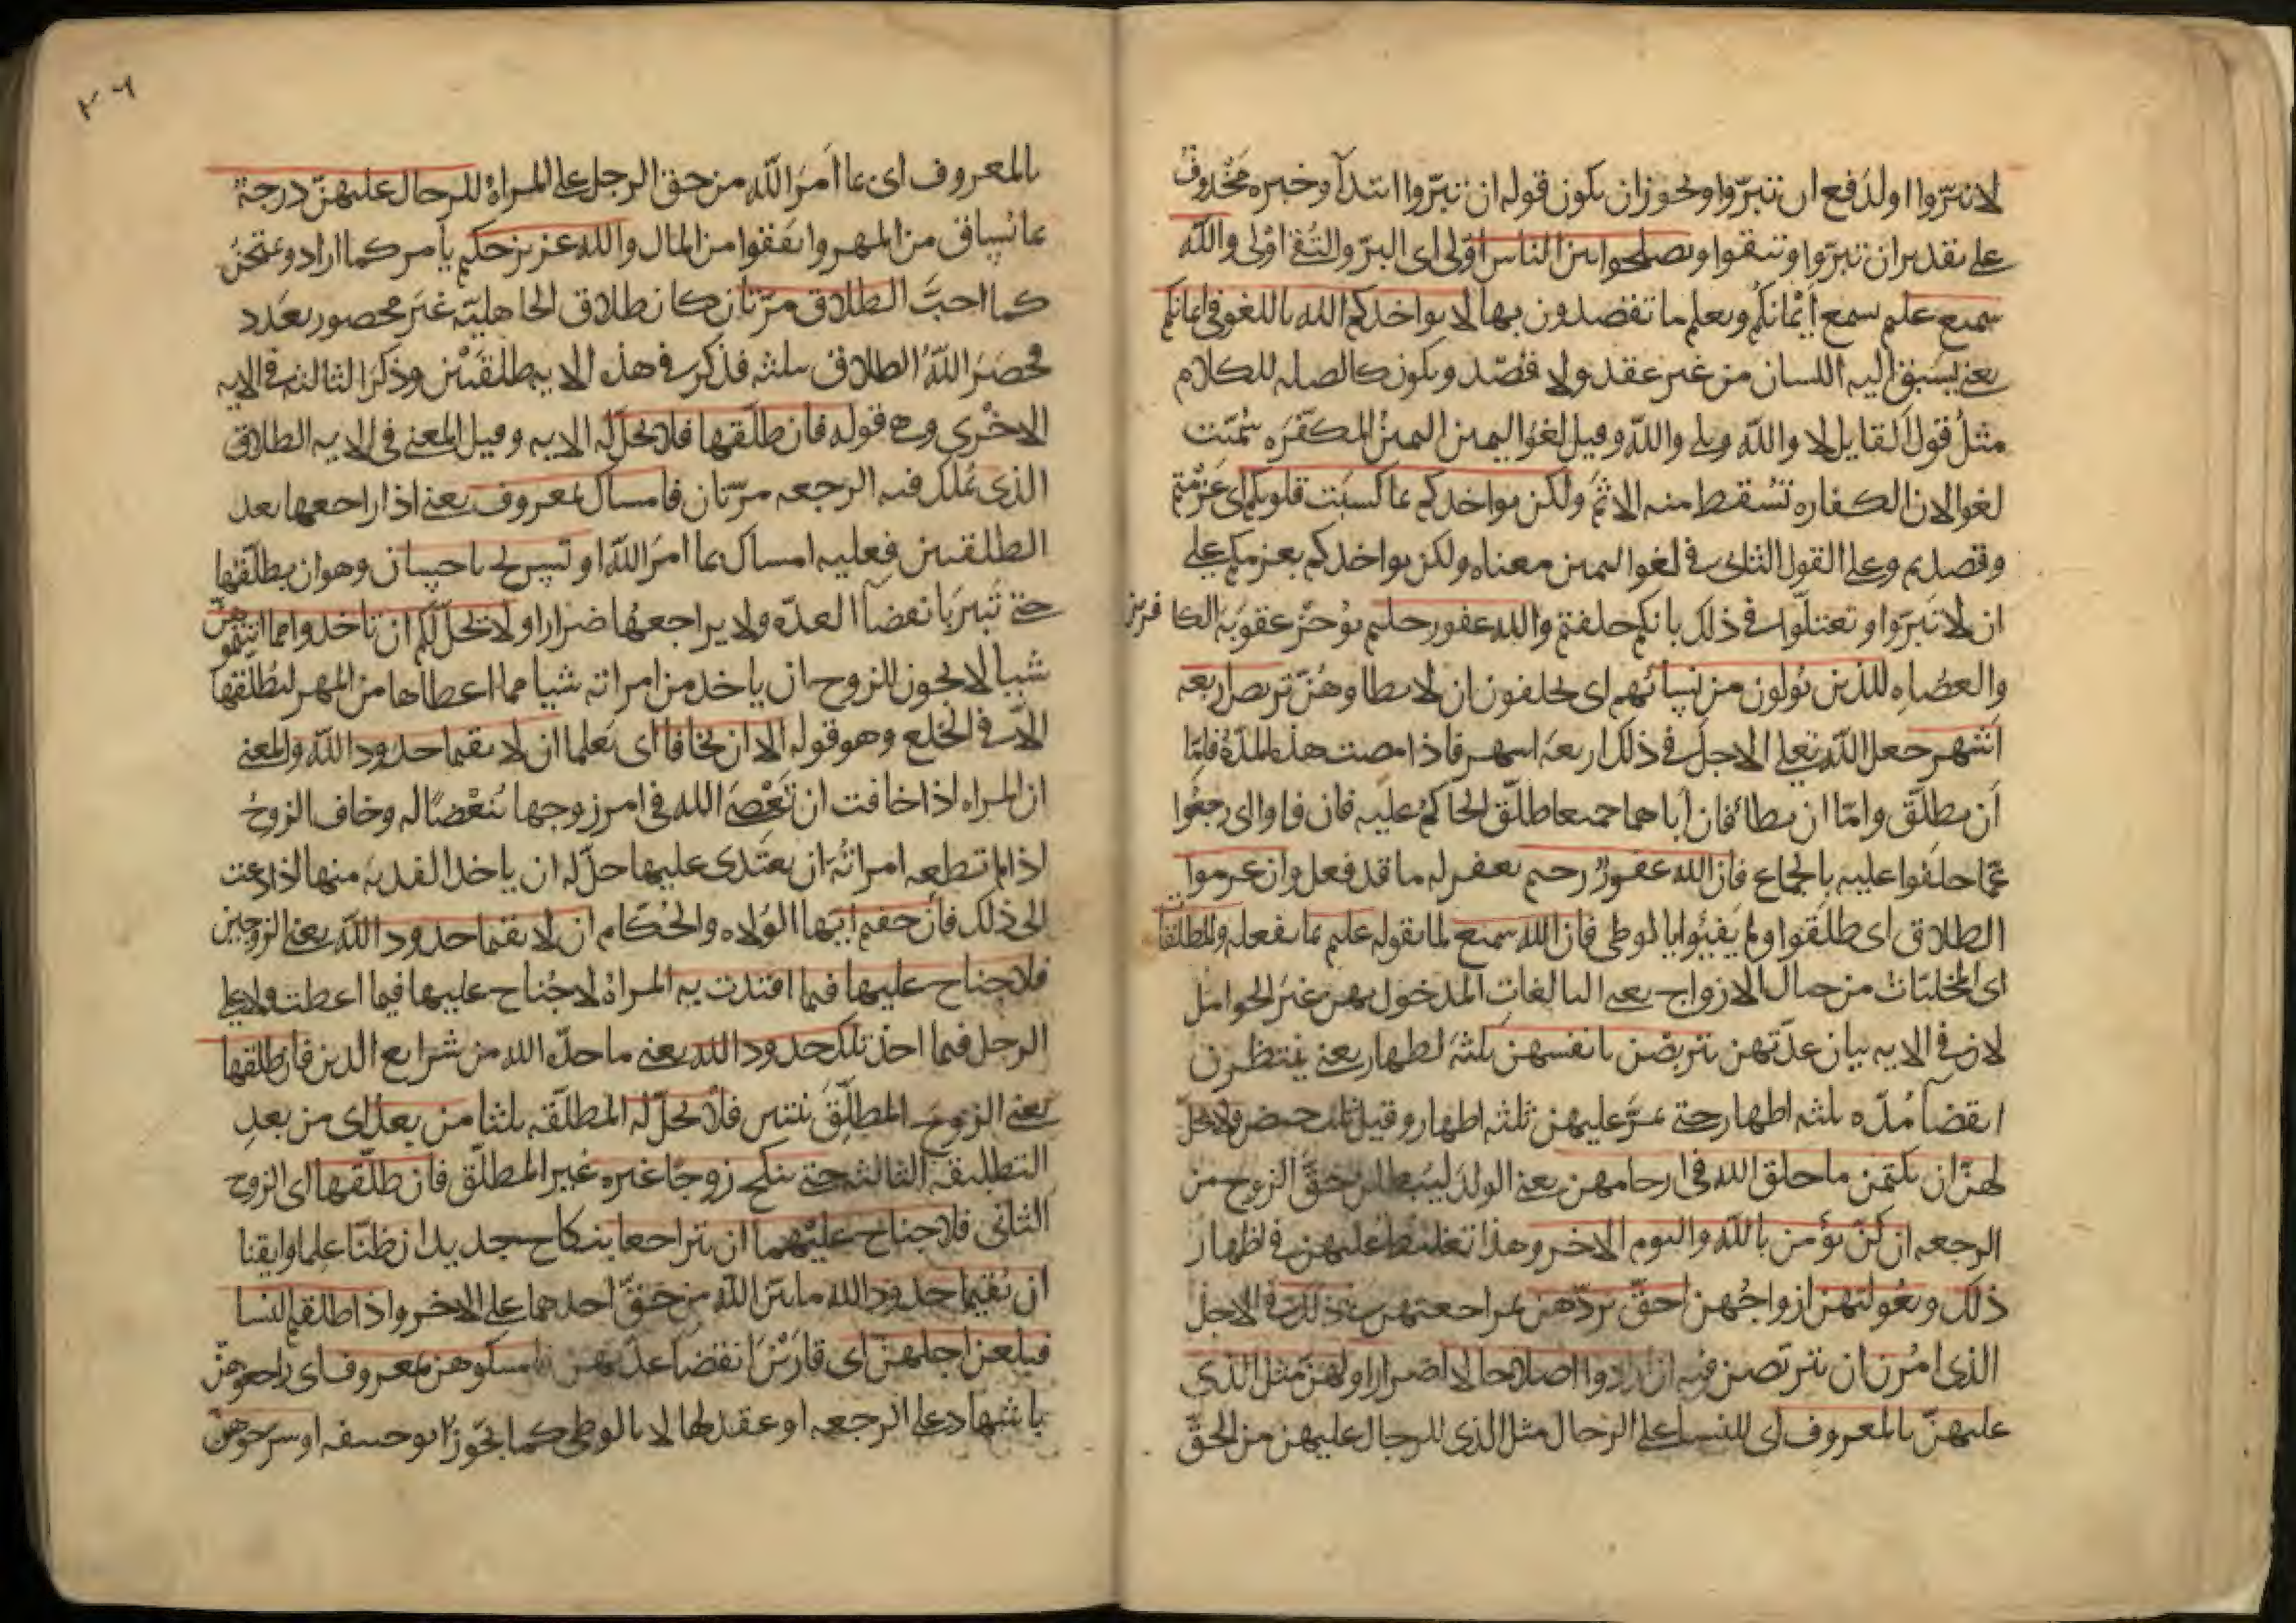 لا تبرّوا اولدفع ان تبرّوا ويجوز ان يكون قوله ان تبرّوا ابتدآ وخبره محذوف
على تقدير ان تبرّوا وتتقوا وتصلحوا بين الناس اوْلى اى البرّ والتقى اوْلى والله
سميع عليم سمع أيْمانكم ويعلم ما تقصدون بها لا يواخذكم الله باللغو فى ايمانكم
يعنى يسبق اليه اللسان من غير عقد ولا قصد ويكون كالصله للكلام
مثل قول القايل لا والله وبلى والله وقيل لغو اليمين اليمين المكفره سُمّيت
لغوا لان الكفاره تسقط منه الاثم ولكن يواخذكم بما كسبت قلوبكم اى عزمتم
وقصدتم وعلى القول الثانى فى لغو اليمين معناه ولكن يواخذكم بعزمكم على
ان لا تبرّوا وتعتلّوا فى ذلك بانكم حلفتم والله غفور حليم يوخّر عقوبة الكافرين
والعصاه للذين يولون من نسائهم اى يحلفون ان لا يطاوهنّ تربص اربعه
اشهر جعل الله تعلى الاجل فى ذلك اربعة اشهر فاذا مضت هذه المدّة فامّا
أن يطلّق وامّا ان يطا فان أباهما جميعا طلّق الحاكم عليه فان فاوا اى رجعوا
عمّا حلفوا عليه بالجماع فان الله غفور رحيم يغفر له ما قد فعل وان عزموا
الطلاق اى طلّقوا ولم يفيئوا بالوطى فان الله سميع لما يقوله عليم بما يفعله والمطلقات
اى المخليّات من حبال الازواج يعنى البالغات المدخول بهن غير الحوامل
لان فى الايه بيان عدّتهن يتربصن بانفسهن ثلثة اطهار يعنى ينتظرن
انقضا مدّه ثلثه اطهار حتى تمرّ عليهن ثلثه اطهار وقيل ثلث حيض ولا يحلّ
لهنّ ان يكتمن ما خلق الله فى ارحامهن يعنى الولد ليبطلن حقّ الزوج من
الرجعه ان كنّ يؤمن بالله واليوم الاخر وهذا تغليظ عليهن فى اظهار
ذلك وبعولتهن ازواجهن احقّ بردّهن بمراجعتهن فى ذلك فى الاجل
الذى امرن ان يتربّصن فيه ان ارادوا اصلاحا لا اضرارا ولهنّ مثل الذى
عليهنّ بالمعروف اى للنسا على الرجال مثل الذى للرجال عليهن من الحقّ
بالمعروف اى بما امر الله من حق الرجل على المراة وللرجال عليهنّ درجة
بما ساق من المهر وانفقوا من المال والله عزيز حكيم يأمر كما اراد ويمتحن
كما احبّ الطلاق مرّتان كان طلاق الجاهليّه غير محصور بعدد
فحصر الله الطلاق بثلثه فذكر فى هذه الايه طلقتين وذكر الثالثه فى الايه
الاخرى وهى قوله فان طلّقها فلا تحلّ له الايه وقيل المعنى فى الايه الطلاق
الذى يملك فيه الرجعه مرّتان فامساك بمعروف يعنى اذا راجعها بعد
الطلقتين فعليه امساك بما امر الله او تسريح باحسان وهو ان يطلّقها
حتى تبين بانقضآ العدّه ولا يراجعها ضرارا ولا يحلّ لكم ان تاخذوا مما اتيتموهنّ
شيا لا يجوز للزوج ان ياخذ من امراته شيا مما اعطاها من المهر ليطلقها
الّا فى الخلع وهو قوله الا ان يخافا اى يعلما ان لا يقيما حدود الله والمعنى
ان المراه اذا خافت ان تعصى الله فى امر زوجها بُغضًا له وخاف الزوج
اذا لم تطعه امراته ان يعتدى عليها حلّ له ان ياخذ الفديه منها اذا دعت
الى ذلك فأن خفتم ايها الولاه والحكام ان لا يقيما حدود الله يعنى الزوجين
فلا جناح عليهما فيما افتدت به المراة لا جناح عليها فيما اعطت ولا على
الرجل فيما اخذ تلك حدود الله يعنى ما حدّه الله من شرايع الدين فان طلقها
يعنى الزوج المطلّق ثنتين فلا تحلّ له المطلّقه ثلثا من بعد اى من بعد
التطليقة الثالثه حتى تنكح زوجا غيره غير المطلّق فان طلّقها اى الزوج
الثانى فلا جناح عليهما ان يتراجعا بنكاح جديد ان ظنّا علما وايقنا
ان يقيما حدود الله ما بيّن الله من حقّ احدهما على الاخر واذا طلقتم النسا
فبلغن اجلهنّ اى قاربن انقضا عدّتهن فامسكوهن بمعروف اى راجعوهنّ
باشهاد على الرجعه او عقد لها لا بالوطى كما يجوّز ابو حنيفه او سرحوهنّ
٢٦